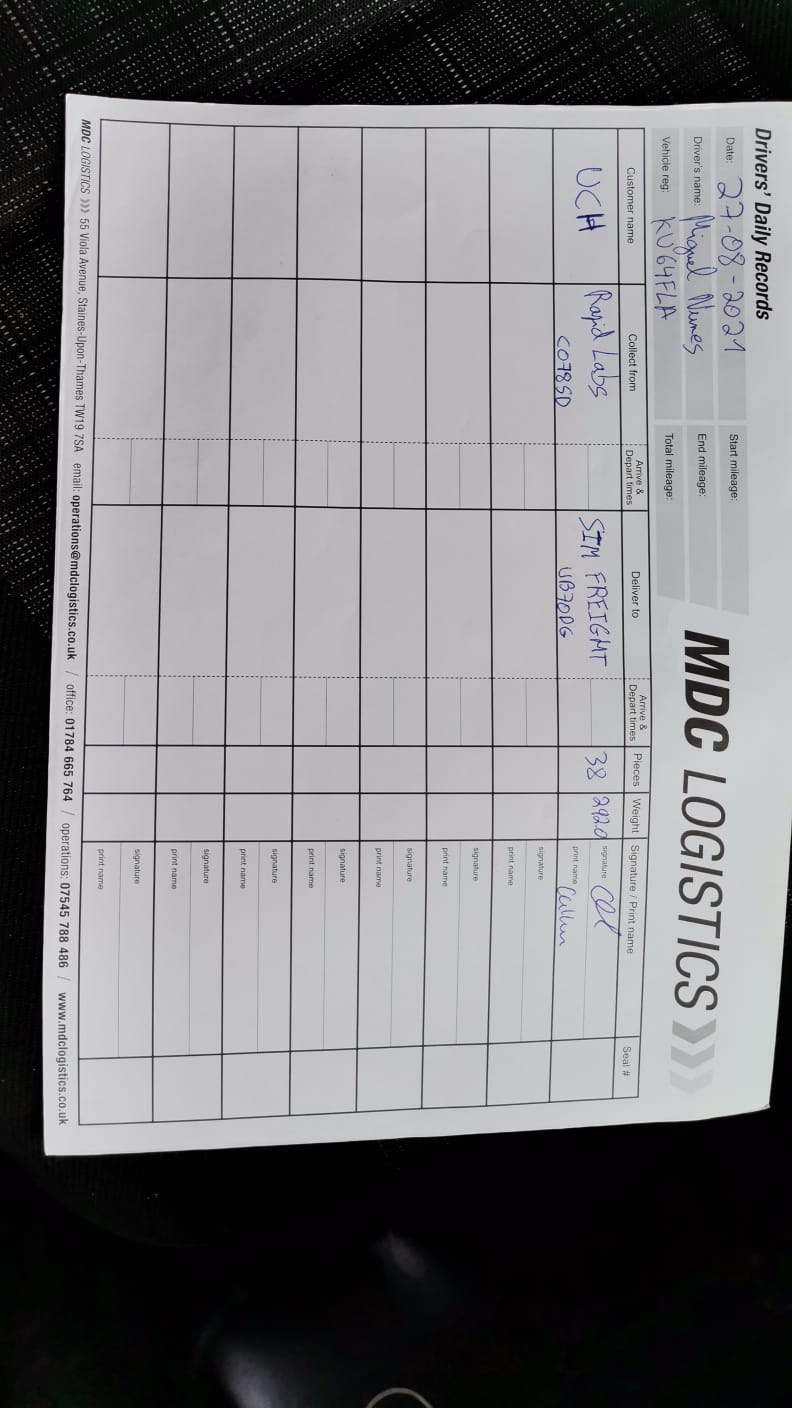 Drivers' Daily Records
Date: 27-08-2021
Start mileage:
Driver's name: Miguel Nunes
End mileage:
Vehicle reg: KU64FLA
Total mileage:
MDC LOGISTICS
Customer name Collect from Arrive & Depart times Deliver to Arrive & Depart times Pieces Weight Signature / Print name Seal #
UCH Rapid Labs SIM FREIGMT 38 2920 signature
CO78SD UB70DG print name Callum
signature
print name
signature
print name
signature
print name
signature
print name
signature
print name
signature
print name
signature
print name
MDC LOGISTICS 55 Viola Avenue, Staines-Upon-Thames TW19 7SA email: operations@mdclogistics.co.uk / office: 01784 665 764 / operations: 07545 788 486 / www.mdclogistics.co.uk